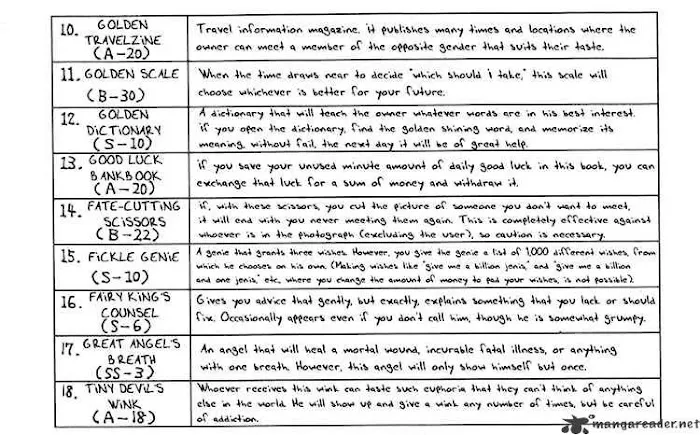 10. GOLDEN
TRAVELZINE
(A-20)
Travel information magazine. it publishes many times and locations where the
owner can meet a member of the opposite gender that suits their taste.
11. GOLDEN SCALE
(B-30)
When the time draws near to decide "which should i take," this scale will
choose whichever is better for your future.
12. GOLDEN
DICTIONARY
(S-10)
A dictionary that will teach the owner whatever words are in his best interest.
if you open the dictionary, find the golden shining word, and memorize its
meaning, without fail, the next day it will be of great help.
13. GOOD LUCK
BANKBOOK
(A-20)
if you save your unused minute amount of daily good luck in this book, you can
exchange that luck for a sum of money and withdraw it.
14. FATE-CUTTING
SCISSORS
(B-22)
if, with these scissors, you cut the picture of someone you don't want to meet,
it will end with you never meeting them again. This is completely effective against
whoever is in the photograph (excluding the user), so caution is necessary.
15. FICKLE GENIE
(S-10)
A genie that grants three wishes. However, you give the genie a list of 1,000 different wishes, from
which he chooses on his own. (Making wishes like "give me a billion jenis," and "give me a billion
and one jenis," etc. where you change the amount of money to pad your wishes, is not possible).
16. FAIRY KING'S
COUNSEL
(S-6)
Gives you advice that gently, but exactly, explains something that you lack or should
fix. Occasionally appears even if you don't call him, though he is somewhat grumpy.
17. GREAT ANGEL'S
BREATH
(SS-3)
An angel that will heal a mortal wound, incurable fatal illness, or anything
with one breath. However, this angel will only show himself but once.
18. TINY DEVIL'S
WINK
(A-18)
Whoever receives this wink can taste such euphoria that they can't think of anything
else in the world. He will show up and give a wink any number of times, but be careful
of addiction.
mangareader.net